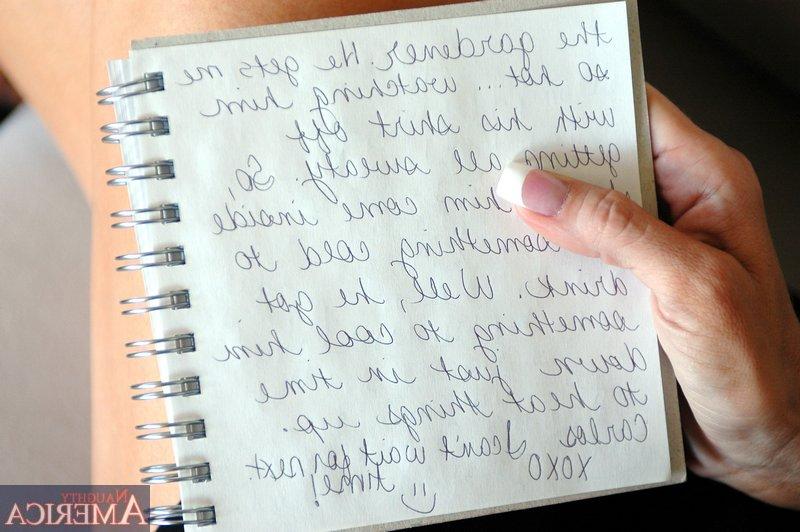 the gardener. He gets me
so hot... watching him
with his shirt off
getting all sweaty. So,
him come inside
something cold to
drink. Well, he got
something to cool him
down just in time
to heat things up.
Carlos I can't wait for next
time!
XOXO
NAUGHTY
AMERICA